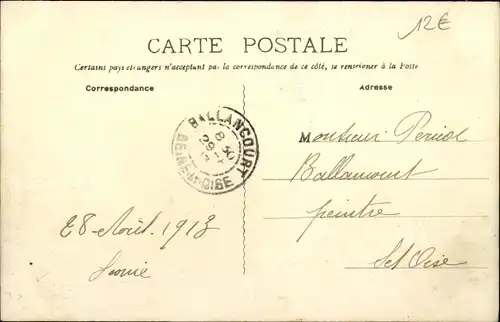 12€
CARTE POSTALE
Certains pays etrangers n'acceptant pas la correspondance de ce côté, se renseigner à la Poste
Correspondance
Adresse
BALLANCOURT
8 30
29 -8
SEINE-ET-OISE
Monsieur
Ballancourt
peintre
Set Oise
28 Août. 1913